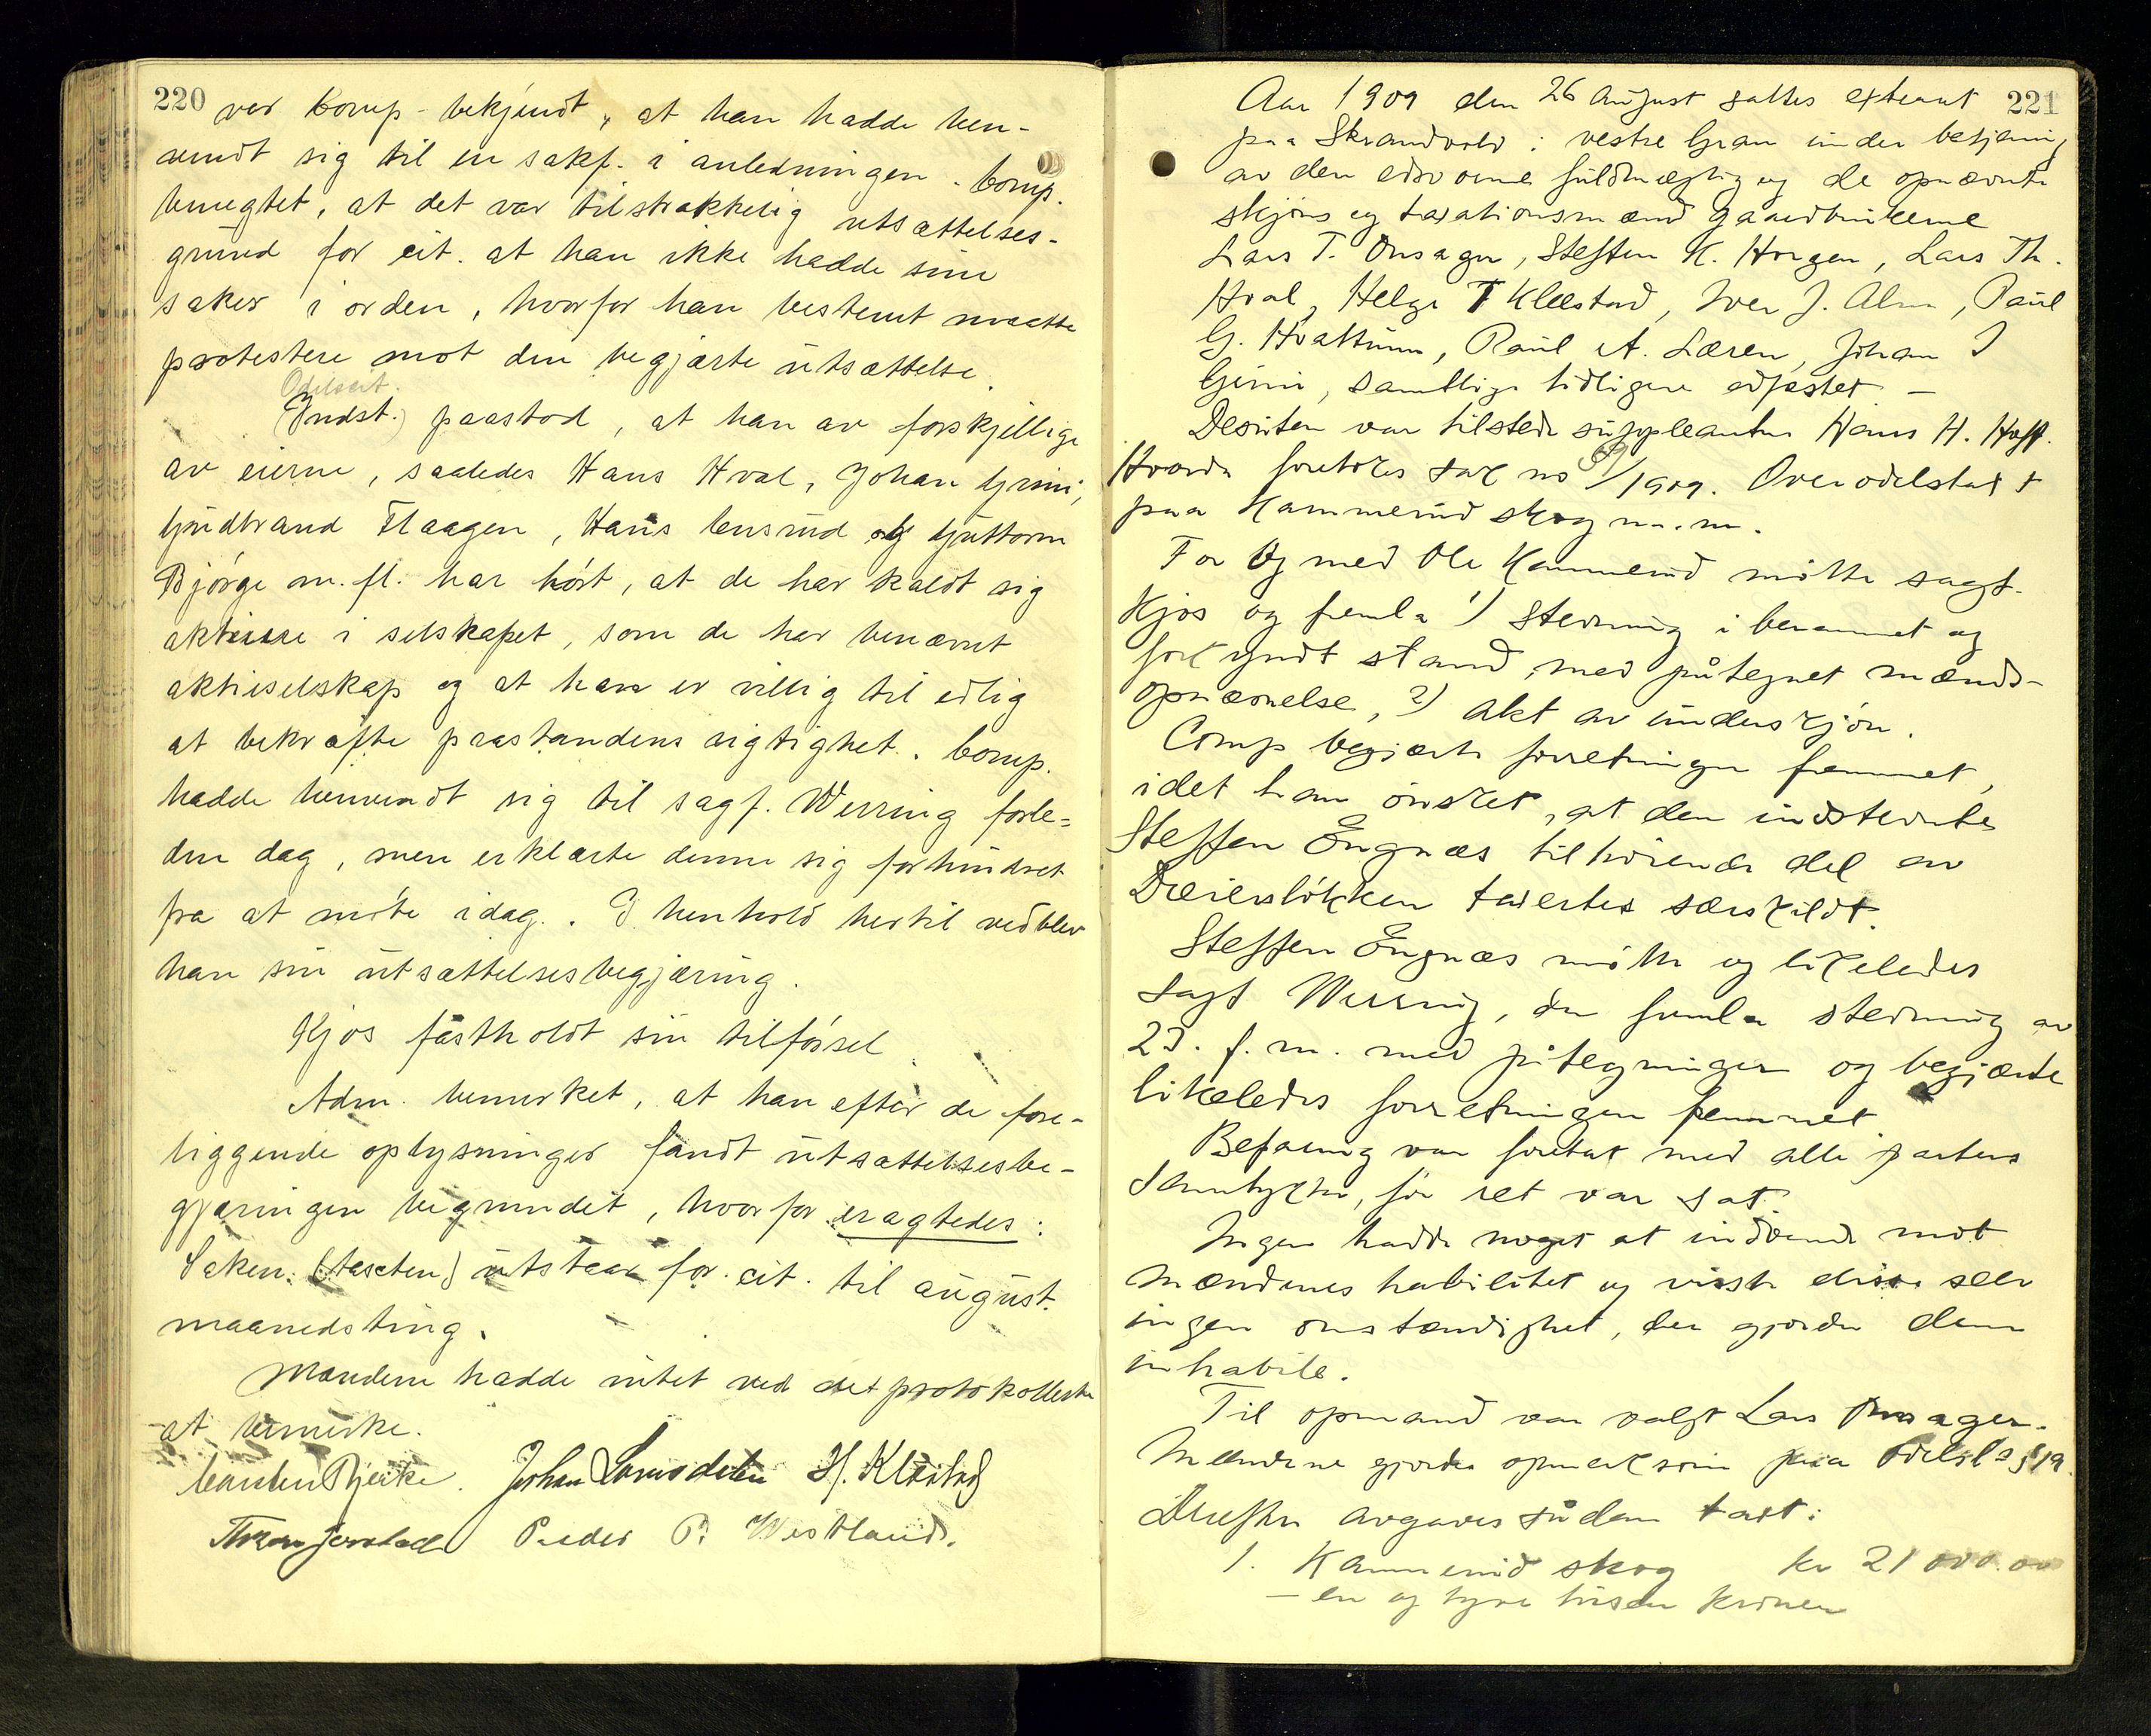 220
var Comp. bekjendt, at han hadde hen-
vendt sig til en sakf. i anledningen. Comp.
benegtet, at det var tilstrækkelig utsættelses-
grund for cit. at han ikke hadde sine
saker i orden, hvorfor han bestemt maatte
protestere mot den begjærte utsættelse.
Odelscit.
(Indst.) paastod, at han av forskjellige
av eierne, saaledes Hans Hval, Johan Grini,
Gudbrand Flaagen, Hans Ensrud og Guttorm
Bjørge m. fl. har hørt, at de har kaldt sig
aktører i selskapet, som de har benævnt
aktieselskap og at han er villig til edlig
at bekræfte paastandens rigtighet. Comp.
hadde henvendt sig til sagf. Werring forle-
den dag, men erklærte denne sig forhindret
fra at møte idag. I henhold hertil vedblev
han sin utsættelsesbegjæring.
Kjos fastholdt sin tilførsel
Adm. bemerket, at han efter de fore-
liggende oplysninger fandt utsættelsesbe-
gjæringen begrundet, hvorfor eragtedes:
Saken (taxten) utstaar for cit. til august
maanedsting.
Mændene hadde intet ved det protokollerte
at bemerke.
Carsten Bjerke. Johan Lomsdalen H. Klæstad
Peder P. Westland.
221
Aar 1909 den 26 August sattes extraret
paa Skrandvold i vestre Gran under betjening
av den edsvorne fuldmægtig og de opnævnte
skjøns og taxationsmænd gaardbrukerne
Lars T. Onsager, Steffen K. Horgen, Lars Th.
Hval, Helge T Klæstad, Iver J. Alm, Paul
G. Hvattum, Paul A. Læren, Johan J
Grini, samtlige tidligere edfæstet. —
Desuten var tilstede suppleanten Hans H. Hoff.
Hvorda foretokes sak no /1909. Overodelstakt
paa Kammerud skog m.m.
For og med Ole Kammerud møtte sagf.
Kjos og fremla 1) Stevning i berammet og
forkyndt stand, med påtegnet mænds-
opnævnelse, 2) akt av underskjøn.
Comp begjærte forretningen fremmet,
idet han ønsket, at den indstevnte
Steffen Engnæs tilhørende del av
Dreiersløkken taxertes særskildt.
Steffen Engnæs møtte og likeledes
Sagf Werring, der fremla stevning av
23. f. m. med påtegninger og begjærte
likeledes forretningen fremmet
Befaring var foretat med alle parters
Samtykke, før ret var sat.
Ingen hadde noget at indvende mot
Mændenes habilitet og visste disse selv
ingen omstændighet, der gjorde dem
inhabile.
Til opmand var valgt Lars Onsager.
Mændene gjordes opmerksom paa Odelsl.s § 19.
Derefter avgaves sådan taxt:
1. Kammerud skog kr 21 000.00
— en og tyve tusen kroner